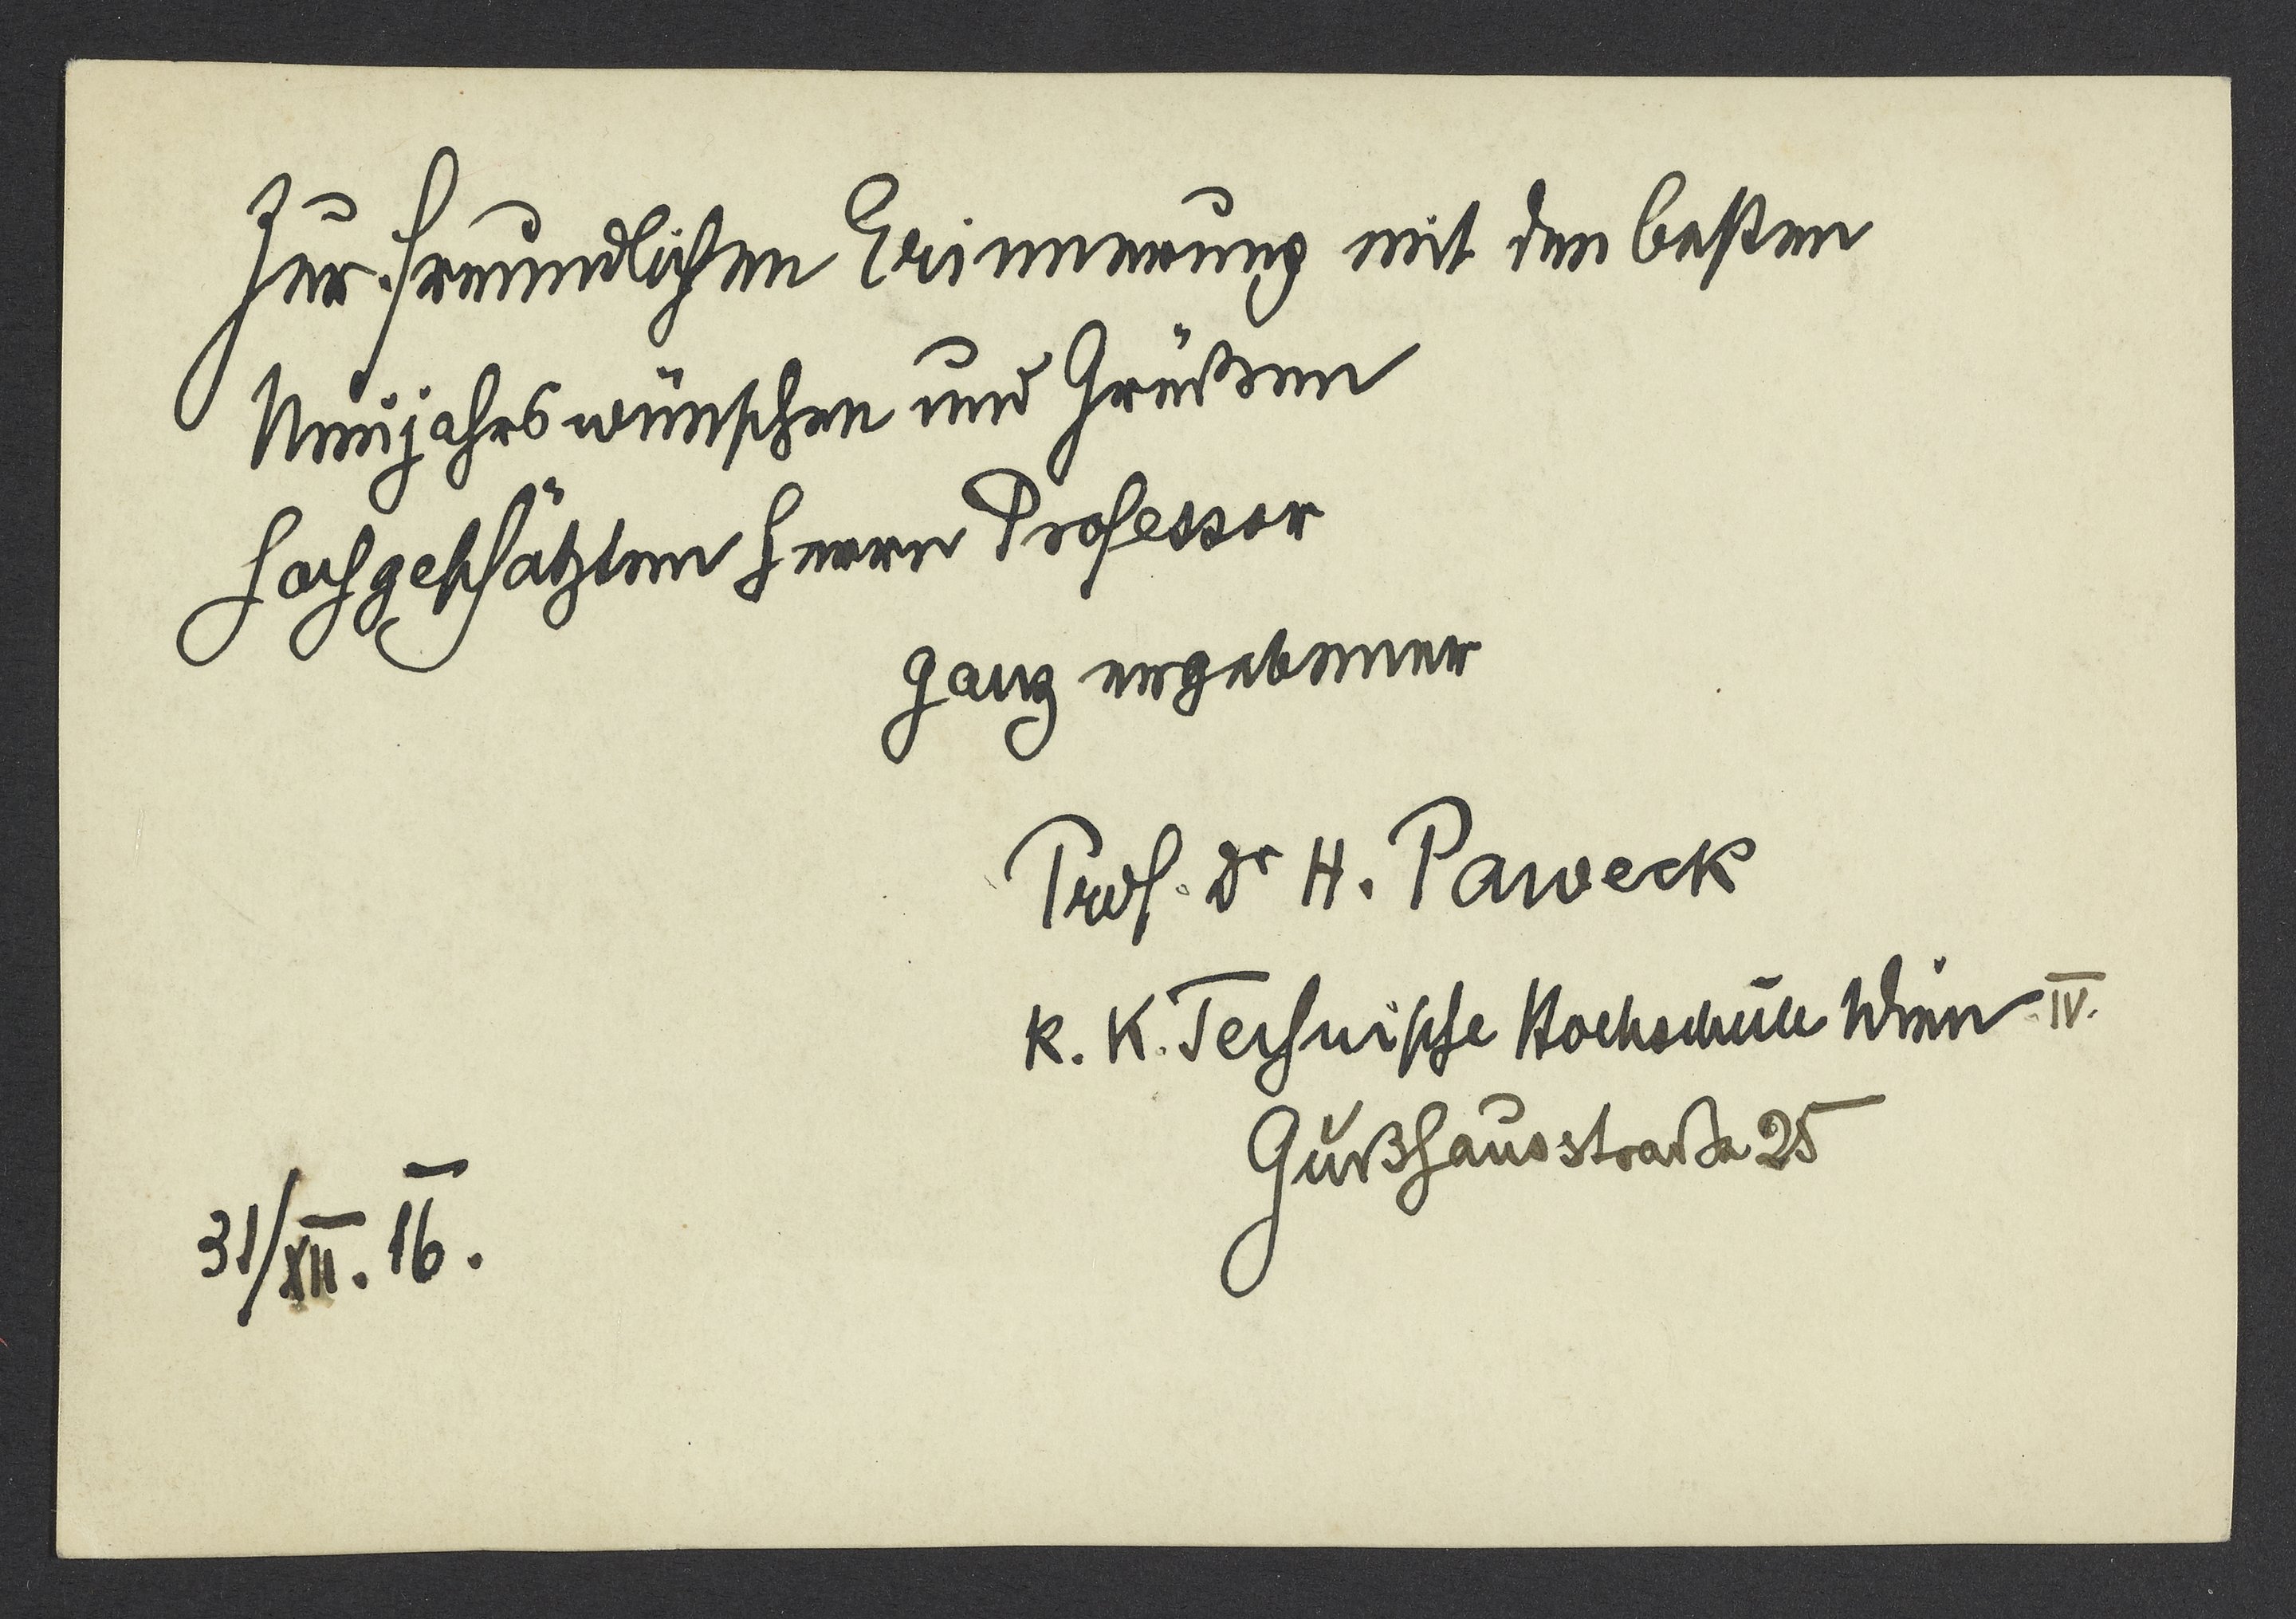 Zur freundlichen Erinnerung mit den besten
Neujahrswünschen und Grüßen
hochgeschätzten Herrn Professor
ganz ergebener
Prof. Dr H. Paweck
k. k. Technische Hochschule Wien IV.
Gußhausstraße 25
31/XII. 16.